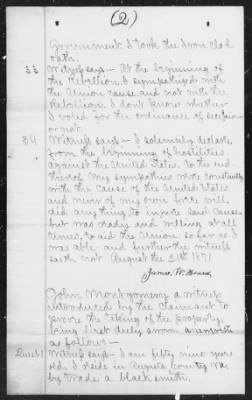 (2)
Government I took the Iron Clad
oath.
33 Witness says - At the beginning of
the Rebellion I sympathized with
the Union cause and not with the
Rebellion. I dont know whether
I voted for the ordinance of secession
or not.
34 Witness says - I solemnly declare,
from the beginning of hostilities
against the United States, to the end
thereof my sympathies were constantly
with the cause of the United States
and never of my own free will
did anything to injure said cause
but was ready and willing at all
times, to aid the Union, so far as I
was able and further the witness
saith not August the 1871
James W.
John Montgomery a witness
introduced by the claimant to
prove the taking of the property,
being first duly sworn answers
as follows -
Quest 1 Witness says - I am fifty nine years
old, I reside in Augusta County Va
by trade a black smith.